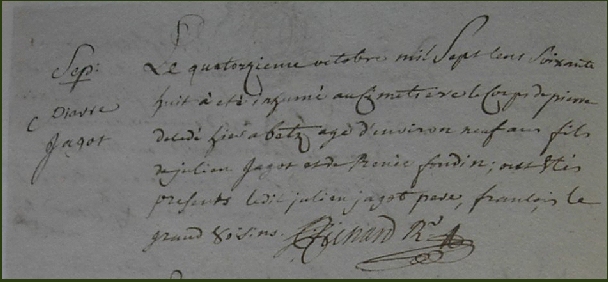 Sep:
Pierre
Jagot
Le quatorzieme octobre mil Sept Cent Soixante
huit à été inhumé au Cimetiere le Corps de pierre
decedé hier a betz agé d'environ neuf ans fils
de julien Jagot et de Renée fondin; ont étés
presents ledit julien jagot pere, françois le
grand Voisins.